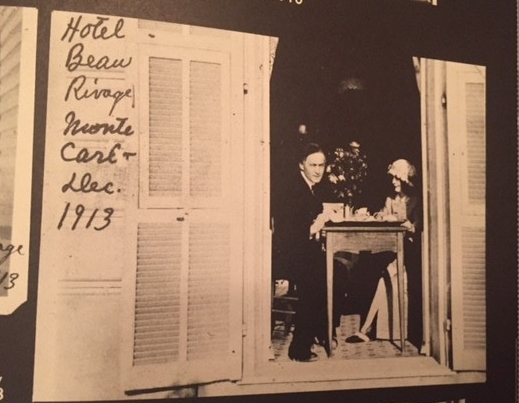 Hotel
Beau
Rivage
Monte
Carl-
Dec.
1913